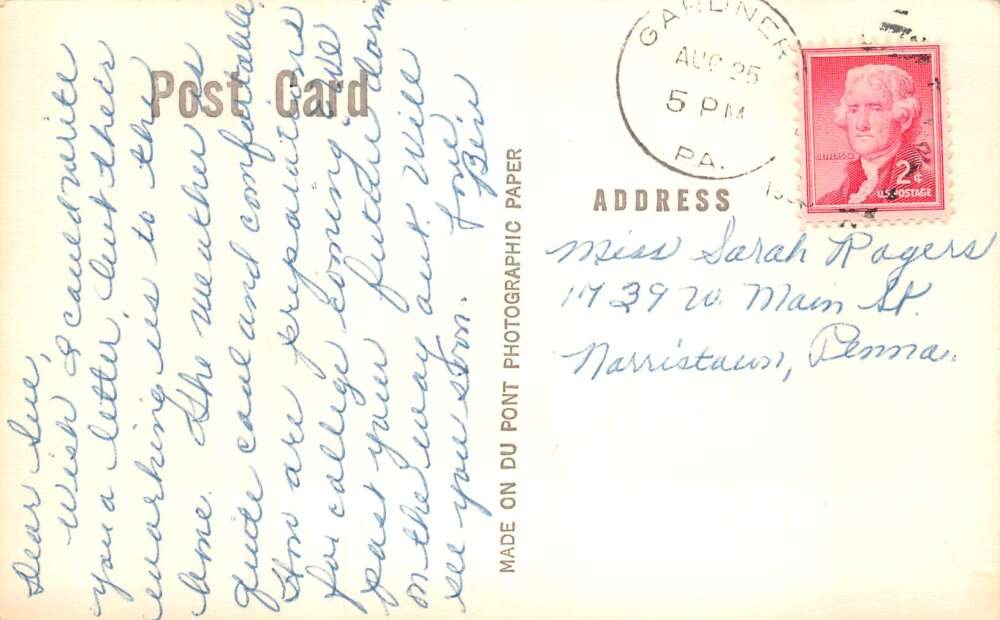 Post Card
Dear Sue,
Wish I could write
you a letter, but their
working us to the
bone. The weather is
quite cool and comfortable.
How are preparations
for college coming? I rode
past your future dorm
on the way out. Will
see you soon. Love
Bev
MADE ON DU PONT PHOTOGRAPHIC PAPER
GARDNER
AUG 25
5 PM
PA.
JEFFERSON
2¢
U.S. POSTAGE
ADDRESS
Miss Sarah Rogers
1739 W. Main St.
Norristown, Penna.